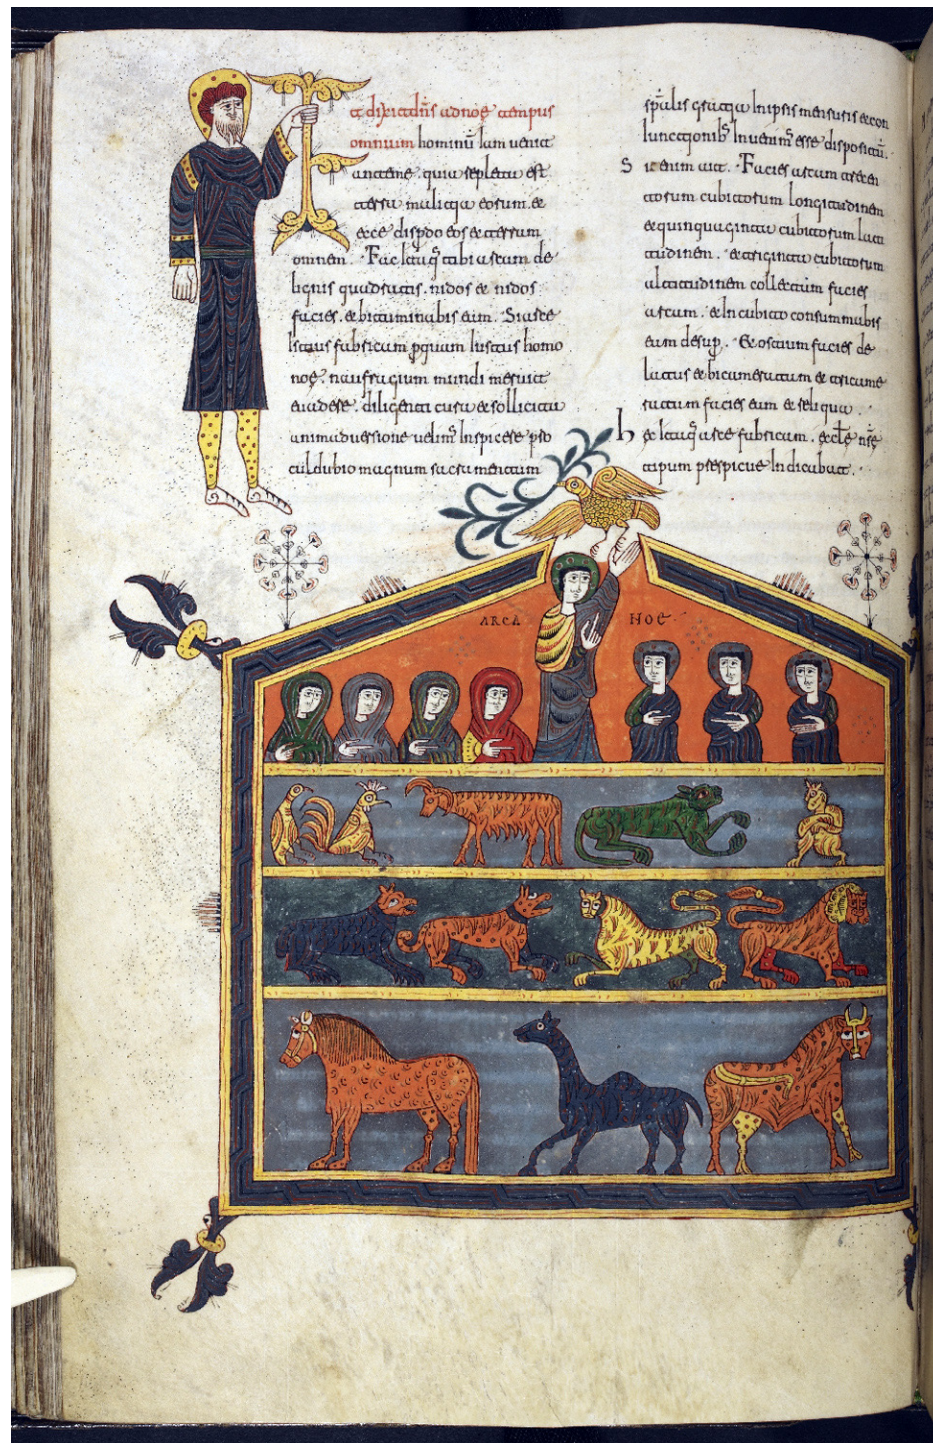 et dixit dn̄s ad noe tempus
omnium hominū iam uenit
ante me. quia repleta est
terra maliqia eorum. et
ecce disp̱do eos et terram
omnem. Fac itaq̄ tibi arcam de
lignis quadratis. nidos et nidos
facies. et bituminabis eam. Si arce
istius fabricam p̱quam iustus homo
noe. naufragium mundi meruit
euadere. diligenti cura et sollicita
animaduersione uelim̄ inspicere pro
cul dubio magnum sacramentum
sp̄alis gratia In ipsis mensuris et con
iunctionib; Inuenim̄ esse dispositū.
Sic enim ait. Facies arcam trecen
torum cubitorum longitudinem
et quinquaginta cubitorum lati
tudinem. et triginta cubitorum
altitudinem collectam facies
arcam. et In cubito consummabis
eam desup̱. Et ostium facies de
latus et bicameratam et tricame
ratam facies eam et reliqua.
hec itaq̄ arce fabricam. eccl̄e nsē
tipum prespicue Indicabat.
ARCA NOE